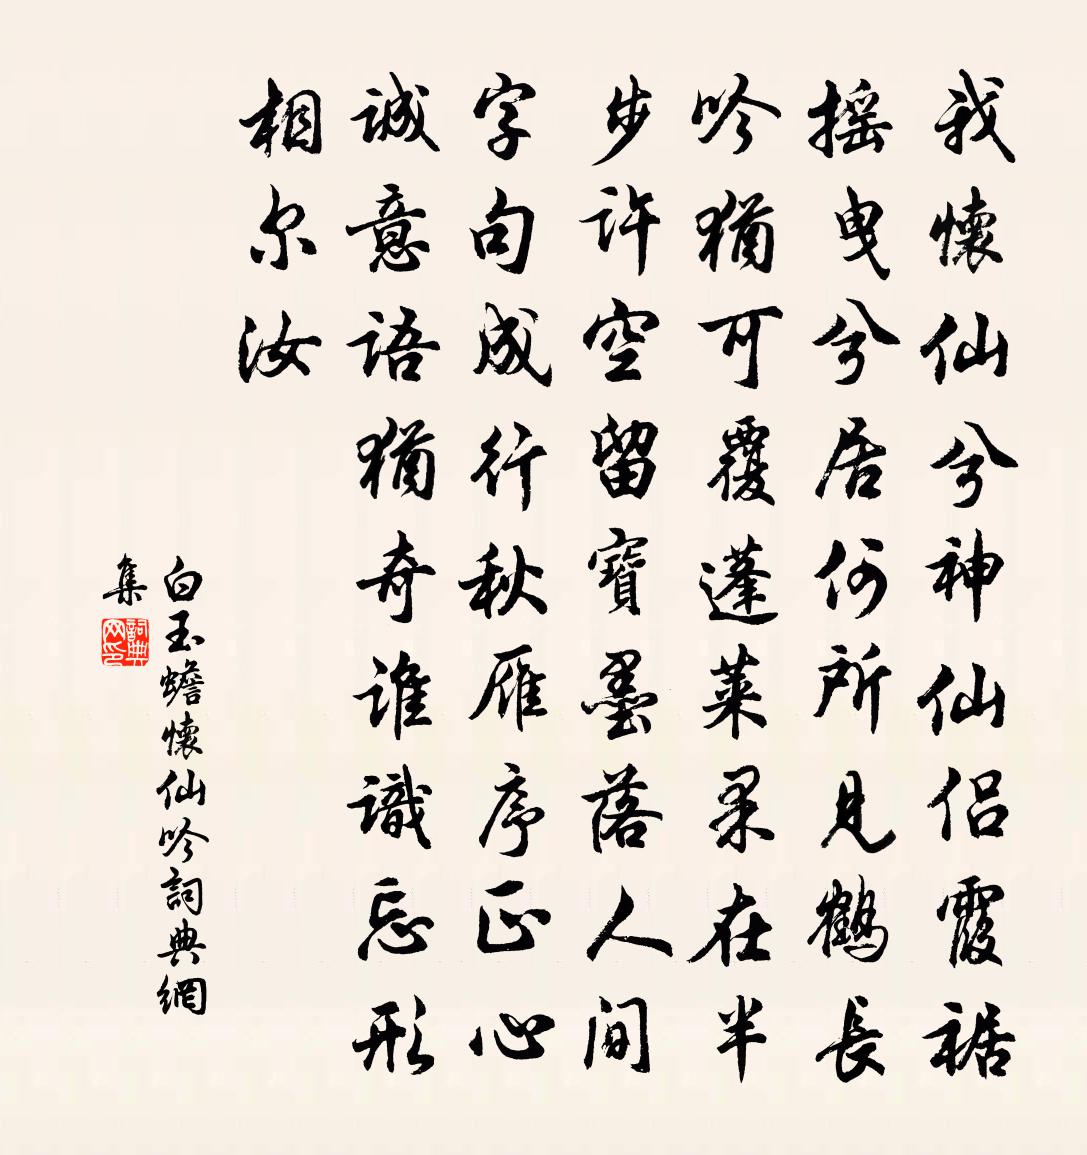 我懷仙兮神仙侣霞裾
摇曳兮居何所見鶴長
吟猶可覆蓬萊果在半
步許空留寶墨落人间
字句成行秋雁序正心
誠意語猶奇誰識忘形
相尔汝
白玉蟾懷仙吟詞典網
集
詞典网印